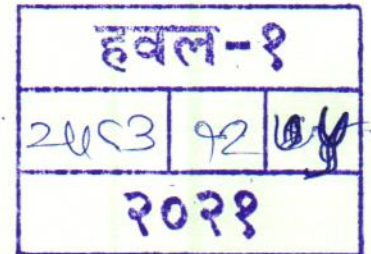 हवल-१
२५८३ १२
२०२१